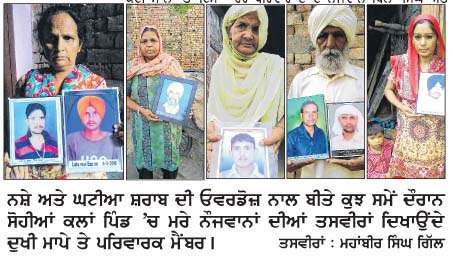 ਨਸ਼ੇ ਅਤੇ ਘਟੀਆ ਸ਼ਰਾਬ ਦੀ ਓਵਰਡੋਜ਼ ਨਾਲ ਬੀਤੇ ਕੁਝ ਸਮੇਂ ਦੌਰਾਨ
ਸੋਹੀਆਂ ਕਲਾਂ ਪਿੰਡ 'ਚ ਮਰੇ ਨੌਜਵਾਨਾਂ ਦੀਆਂ ਤਸਵੀਰਾਂ ਦਿਖਾਉਂਦੇ
ਦੁਖੀ ਮਾਪੇ ਤੇ ਪਰਿਵਾਰਕ ਮੈਂਬਰ। ਤਸਵੀਰਾਂ : ਮਹਾਂਬੀਰ ਸਿੰਘ ਗਿੱਲ